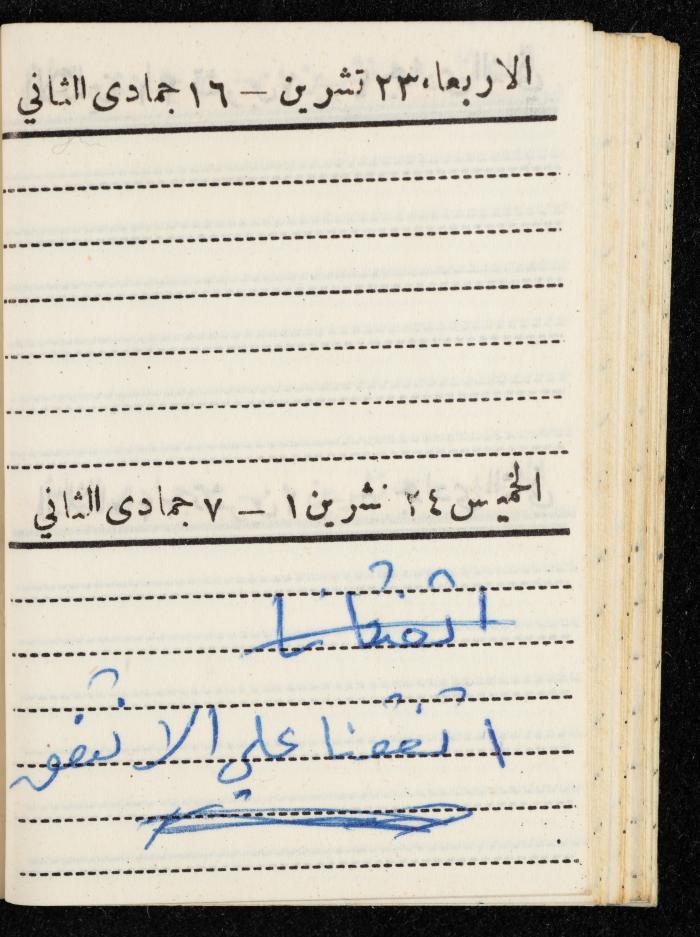 الاربعاء ٢٣ تشرين - ١٦ جمادى الثاني
الخميس ٢٤ تشرين ١ - ٧ جمادى الثاني
اتفقنا
اتفقنا على الا نتفق